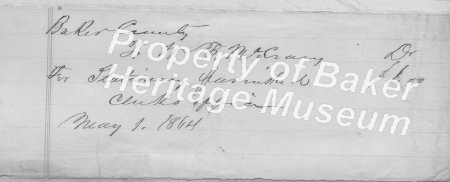 Baker County
To B McCrary Dr
For Stationery furnished
Clerks office
May 1. 1864
Property of Baker
Heritage Museum